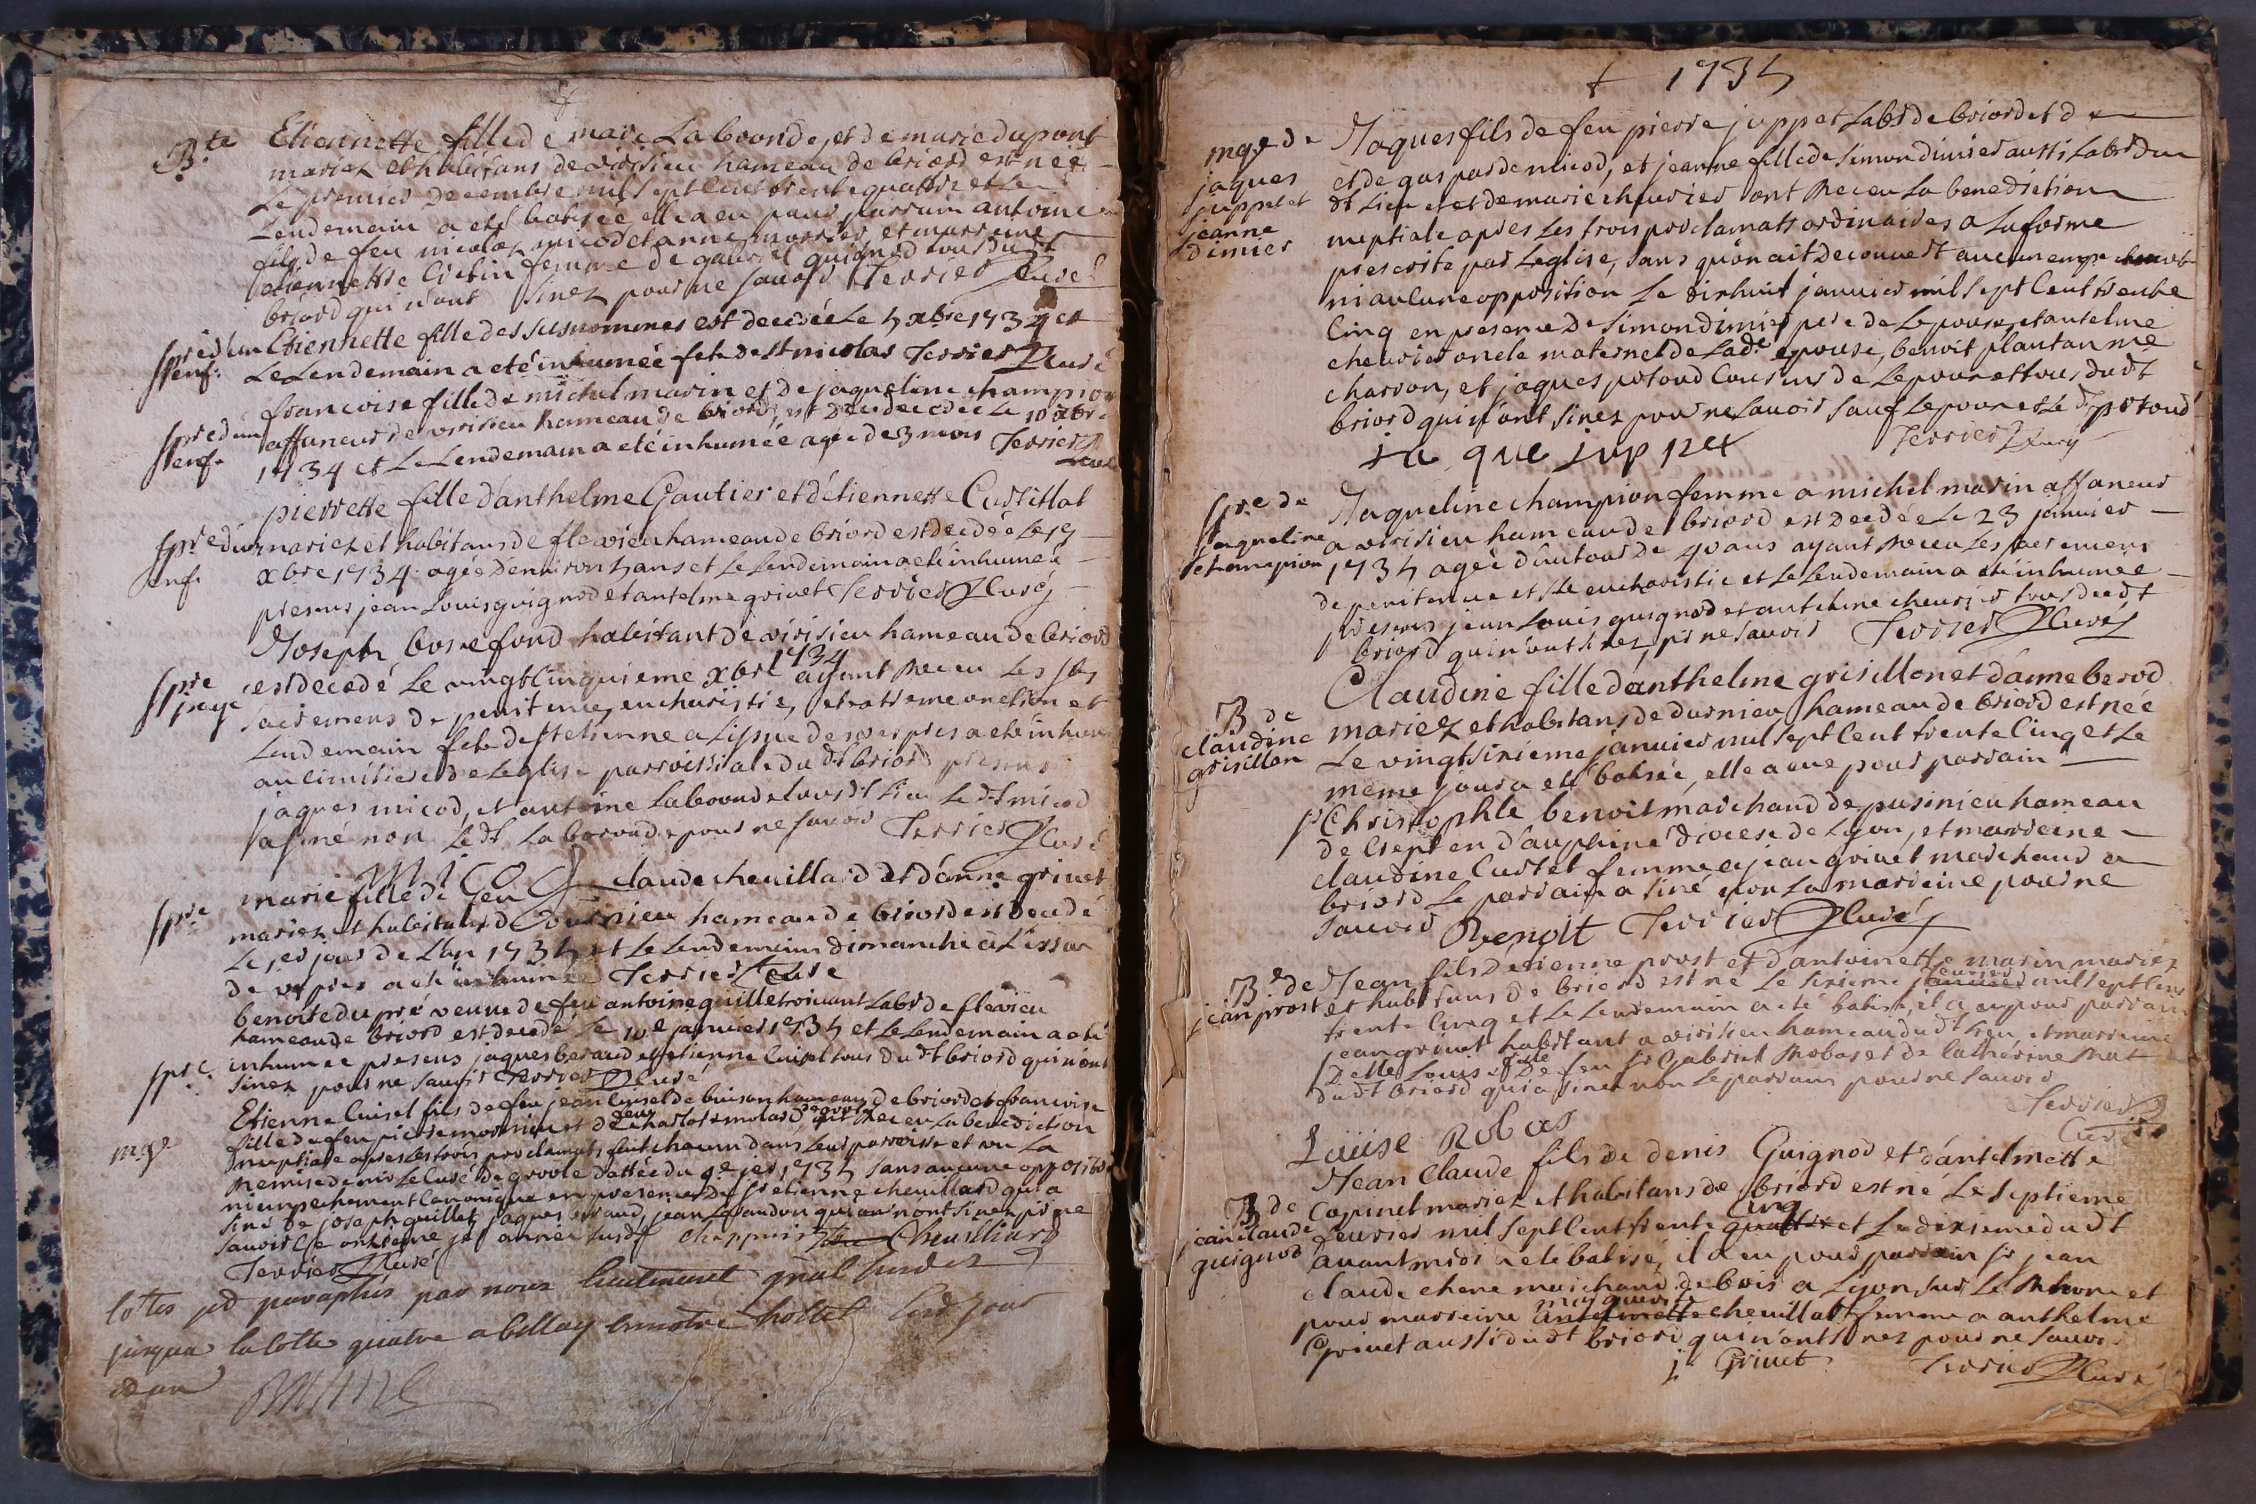 B.te
Etiennette fille de marc La beronde, et de marie dupont
mariez et habitans de virisieu hameau de briord est née
Le premier decembre mil sept cent trente quattre et Le
Lendemain a eté batisée elle a eu pour parrain antoine
fils de feu nicolas micod et anne et marreine
etiennette femme de gabriel guignod tous dudt
briord qui n'ont sinez pour ne savoir Terrier Curé
spre d'un enf.
Etiennette fille des susnommés est decedée Le 5 xbre 1734 et
Le Lendemain a eté inhumée fete de st nicolas Terrier Curé
spre d'un enf.
francoise fille de michel marin et de jaqueline champion
affaneur de virisieu hameau de briord, est decedée Le 10 xbre
1734 et Le Lendemain a eté inhumée agée de 3 mois Terrier Curé
spre d'un enf.
pierrette fille d'anthelme Gautier et d'etiennette
mariez et habitans de flevieu hameau de briord est decedée Le 19
xbre 1734 agée d'environ 5 ans et Le Lendemain a eté inhumée
presens jean Louis guignod et antelme grivet Terrier Curé
spre
Joseph bonefond habitant de virisieu hameau de briord
est decedé Le vingt cinquieme xbre 1734 ayant receu Les
sacremens de penitence, eucharistie, et extreme onction et
Lendemain fete de st etienne a L'issue de vespres a eté inhumé
au cimitiere de L'eglise parroissiale du dt briord presens
jaques micod, et antoine Laberonde tous dt lieu Le dt micod
a siné non Le dt La beronde pour ne savoir Terrier Curé
micod
spre
marie fille de feu claude chevillard et d'anne grivet
mariez et habitans de dornieu hameau de briord est decedé
Le 1er jour de L'an 1735 et Le Lendemain dimanche a L'issue
de vespres a eté inhumée Terrier Curé
spre
benoite du pré veuve de feu antoine guille vivant Labr de flevieu
hameau de briord est decedé Le 10e janvier 1735 et Le Lendemain a eté
inhumée presens jaques beraud et etienne Cuisel tous du dt briord qui n'ont
sinez pour ne savoir Terrier Curé
mge
Etienne Cuisel fils de feu jean Cuisel de buison hameau de briord et francoise
fille de feu pierre et de feue charlote molard ont receu La benediction
nuptiale apres Les trois proclamats faits chacun dans Leur parroisse et vu La
remise de mr Le Curé de groole dattée du 9e jer 1735 sans aucune opposition
ni empechement Canonique en presence de sr etienne chevillard qui a
siné de joseph guillet jaques beraud, jean qui n'ont sinez pr ne
savoir Ce jer année susdt chappuis Chevilliard
Terrier Curé
Cottes et paraphés par nous Lieutenant gnal
jusqua la cotte quatre a belley en notre hottel
et an
+ 1735
mge de
jaques
juppet et
jeanne
dimier
Jaques fils de feu pierre juppet Labr de briord et d
et de gasparde micod, et jeanne fille de simon dimier aussi Labr du
dt Lieu et de marie chevrier ont receu La benediction
nuptiale apres Les trois proclamats ordinaires a La forme
prescrite par L'eglise, sans qu'on ait decouvert aucun empechement
ni aucune opposition Le dixhuit janvier mil sept Cent trente
Cinq en presence de Simon dimier pere de L'epouse, et antelme
chevrier oncle maternel de Lade epouse, benoit plantan me
charron, et jaques potoud Cousins de L'epoux et tous dudt
briord qui n'ont sinez pour ne savoir sauf L'epoux et Le dt potoud
ja que jup pet Terrier Curé
spre de
jaqueline
champion
Jaqueline champion femme a michel marin affaneur
a virisieu hameau de briord est decedée Le 23 janvier
1735 agée d'autour de 40 ans ayant receu Les sacremens
de penitence et de eucharistie et Le Lendemain a eté inhumée
presens jean Louis guignod et antelme chevrier tous dudt
briord qui n'ont sinez, pr ne savoir Terrier Curé
B de
claudine
grisillon
Claudine fille d'anthelme grisillon et d'anne berod
mariez et habitans de dornieu hameau de briord est née
Le vingt sixieme janvier mil sept Cent trente Cinq et Le
meme jour a eté batisée, elle a eue pour parrain
sr Christophle benoit marchand de pusinieu hameau
de Crept en dauphiné diocese de Lyon, et marreine
claudine Custet femme a jean grivet marchand a
briord Le parrain a siné non La marreine pour ne
savoir Benoit Terrier Curé
Be de
jean prost
Jean fils d'etienne prost et d'antoinette marin mariez
et habitans de briord est né Le sixieme janvier fevrier mil sept Cens
trente Cinq et Le Lendemain a eté batisé, et a eu pour parrain
jean grivet habitant a virisieu hameau dudt Lieu et marreine
Delle Louise fille de feu sr Gabriel Robas et de Catherine Mat
dudt briord qui a sinez non Le parrain pour ne savoir
Terrier Curé
Louise Robas
B de
jean claude
guignod
Jean Claude fils de denis Guignod et d'antelmette
Copinet mariez et habitans de briord est né Le septieme
fevrier mil sept Cent trente quattre Cinq et Le dixieme dudt
avant midi a eté batisé, il a eu pour parrain sr jean
claude chene marchand de bois a Lyon sur Le Rhone et
pour marreine antelmette marguerite chevillard femme a anthelme
Grivet aussi dudt briord qui n'ont sinez pour ne savoir
j. Grivet Terrier Curé